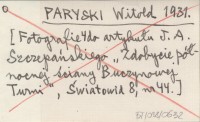 PARYSKI Witold 1931.
[Fotografie do artykułu J. A.
Szczepańskiego „Zdobycie pół-
nocnej ściany Buczynowej
Turni”, Światowid 8, nr 44.]